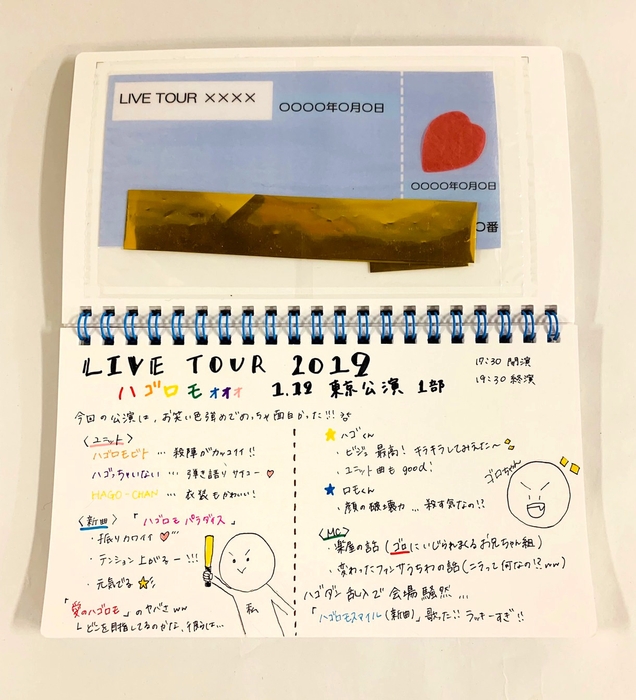 LIVE TOUR ××××
〇〇〇〇年〇月〇日
〇〇〇〇年〇月〇日
〇番
LIVE TOUR 2019
ハゴロモオオオ 1.12 東京公演 1部
17:30 開演
19:30 終演
今回の公演は、お笑い色強めでめっちゃ面白かった!!!
〈ユニット〉
ハゴロモビト … 殺陣がカッコイイ!!
ハゴっちゃいない … 弾き語り サイコー
HAGO-CHAN … 衣装もかわいい!
〈新曲〉「ハゴロモパラダイス」
・振りカワイイ
・テンション上がるー!!!
・元気でる
「愛のハゴロモ」のヤバさww
どこを目指してるのかな、彼らは…
私
ハゴくん
・ビジュ最高! キラキラしてみえた~
・ユニット曲も good!
ロモくん
・顔の破壊力 … 殺す気なの!?
ゴロちゃん
〈MC〉
・楽屋の話(ゴロにいじられまくるお兄ちゃん組)
・変わったファンサうちわの話(ニラって何なの!?ww)
ハゴダン乱入で会場騒然…
「ハゴロモスマイル(新曲)」歌った!! ラッキーすぎ!!